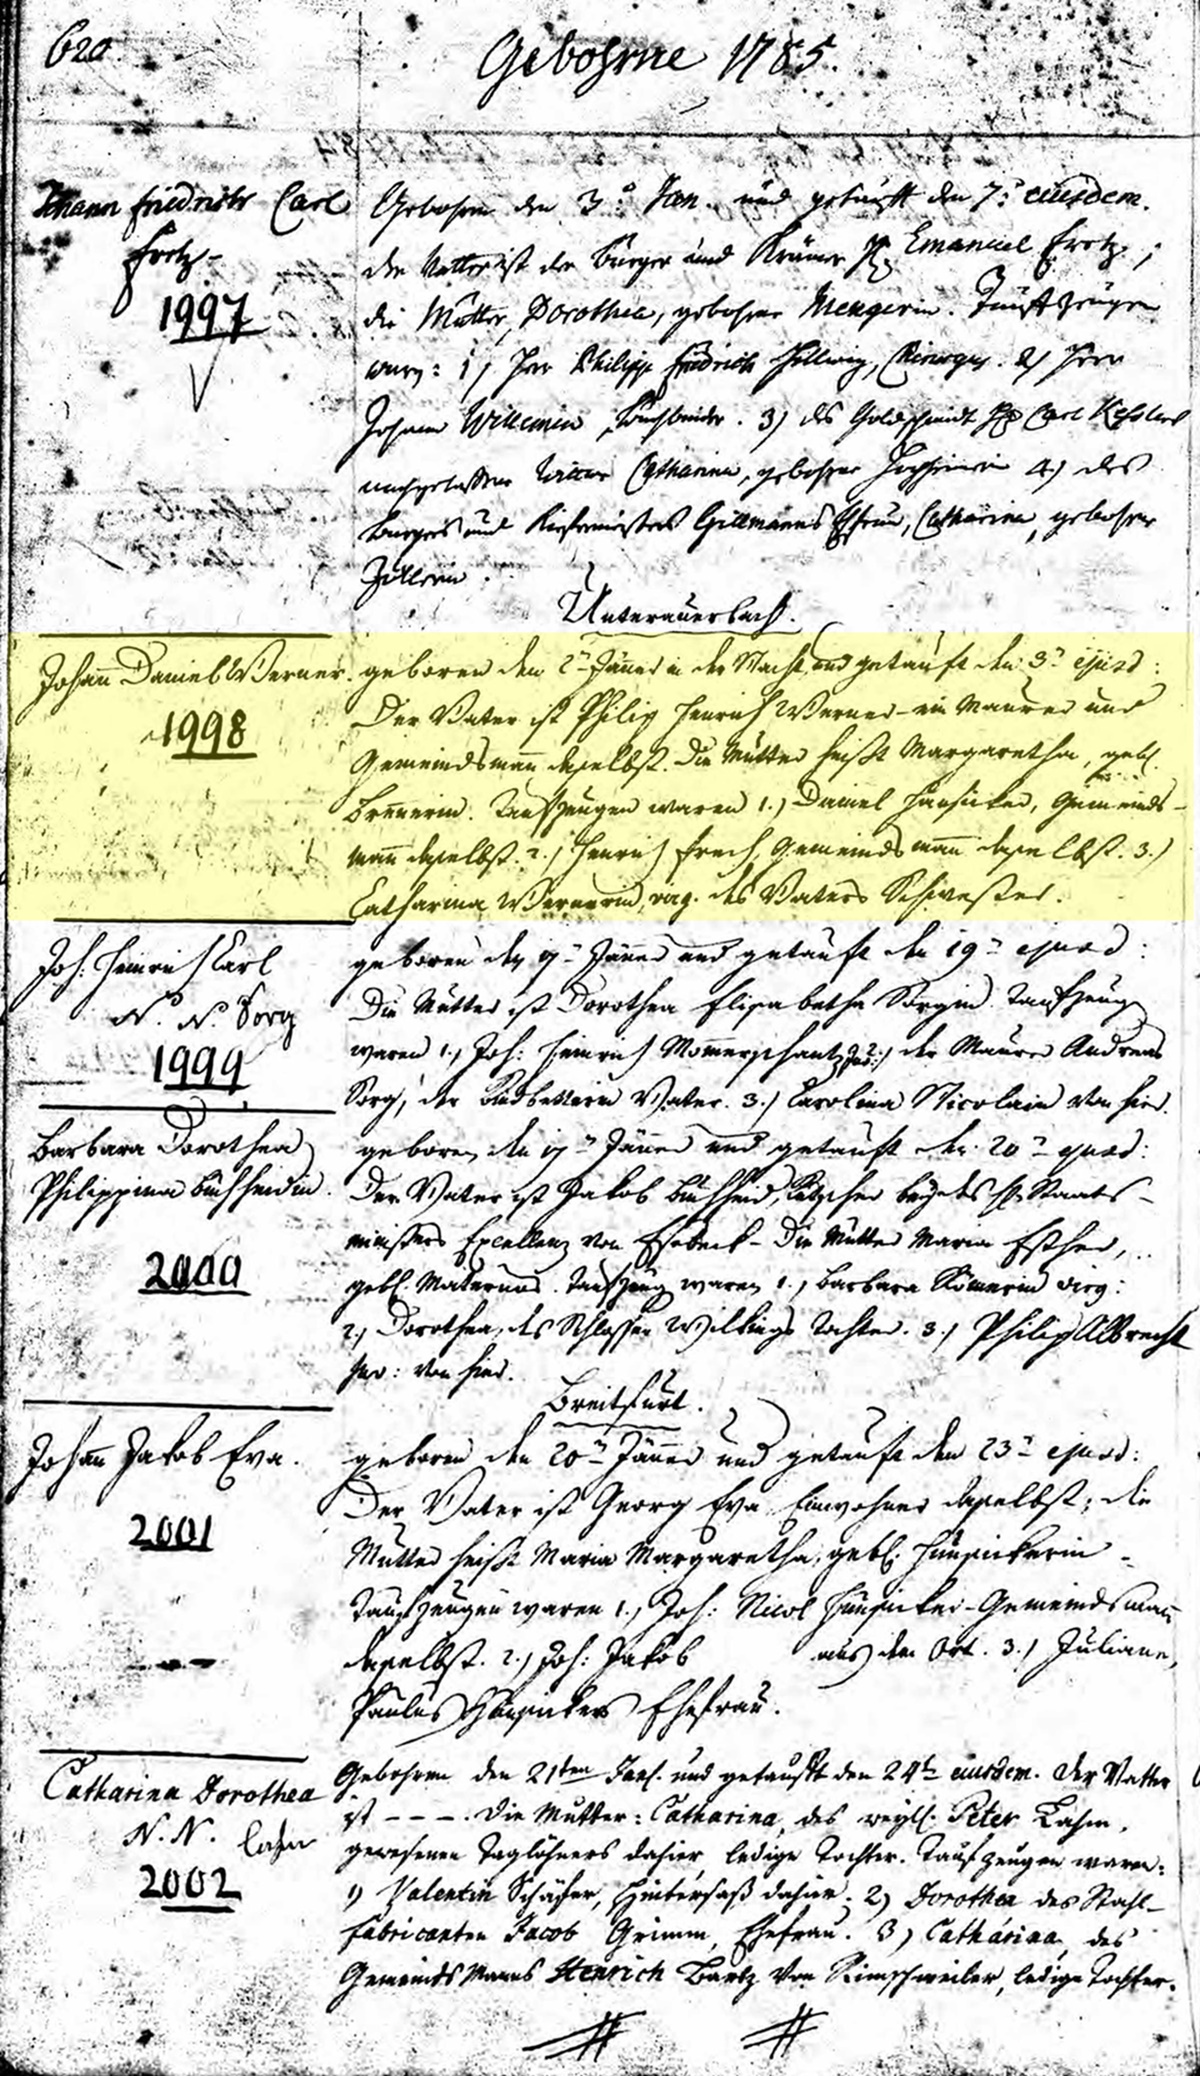 620
Gebohrne 1785.
Johann Friedrich Carl
1997
Gebohren den 3. Jan. und getaufft den 7. eiusdem.
der Vatter ist der Burger und Krämer H. Emanuel ;
die Mutter, Dorothea, gebohrne Mengerin. Taufzeugen
waren: 1) Herr Philipp Friedrich Hellwig, Chirurgus. 2) Herr
Johann Willemin, . 3) des Goldschmidt H. Carl Kessler
nachgelassene Wittwe Catharina, gebohrne 4) des
Burgers und Gillmanns Ehefrau, Catharina, gebohrne
Zöllerin.
Unterauerbach.
Johann Daniel Werner.
1998
geboren den 2n Jänner in der Nacht und getauft den 3n ejusd:
Der Vater ist Philip Henrich Werner - ein Maurer und
Gemeindsmann daselbst. Die Mutter heißt Margaretha, gebl.
Brennerin. Taufzeugen waren 1.) Daniel Hunsicker, Gemeinds-
mann daselbst. 2.) Henrich Frech, Gemeindsmann daselbst. 3.)
Catharina Wernerin, des Vaters Schwester.
Joh: Heinrich Carl
N. N. Sorg
1999
geboren den und getauft den 19n ejusd:
Die Mutter ist Dorothea Elisabetha Sorgin. Taufzeugen
waren 1.) Joh: Heinrich 2.) der Maurer Andreas
Sorg, der Kindbetterin Vater. 3.) Carolina Nicolain von hier.
Barbara Dorothea
Philippina Buchheidin.
2000
geboren den 17n Jänner und getauft den 20n ejusd:
Der Vater ist Jakob Buchheid, Kutscher bey des H. Staats-
ministers Excellenz von Esebeck - Die Mutter Maria Esther,
gebl. Maternus. Taufzeugen waren 1.) Barbara Römerin virg:
2.) Dorothea, des Schlosser Tochter. 3.) Philip Albrecht
jun: von hier.
Breitfurt.
Johann Jakob Eva.
2001
geboren den 20n Jänner und getauft den 23n ejusd:
Der Vater ist Georg Eva Einwohner daselbst; die
Mutter heißt Maria Margaretha, gebl. Hunsickerin -
Taufzeugen waren 1.) Joh: Nicol Hunsicker - Gemeindsmann
daselbst. 2.) Joh: Jakob aus dem Ort. 3.) Juliane,
Paulus Hunsickers Ehefrau.
Catharina Dorothea
N. N. Lahm
2002
Gebohren den 21ten Jan. und getaufft den 24t. eiusdem. Der Vatter
ist - - - -. Die Mutter: Catharina, des weyl. Peter Lahm,
gewesenen Taglöhners dahier, ledige Tochter. Taufzeugen waren:
1) Valentin Schäfer, Hintersaß dahier. 2) Dorothea des Stahl-
fabricanten Jacob Grimm, Ehefrau. 3) Catharina, des
Gemeinds Manns Henrich Bartz von Rimschweiler, ledige Tochter.